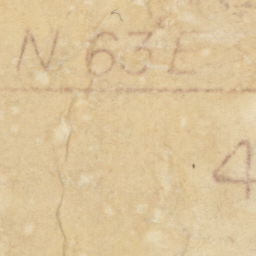 N 63 E
4